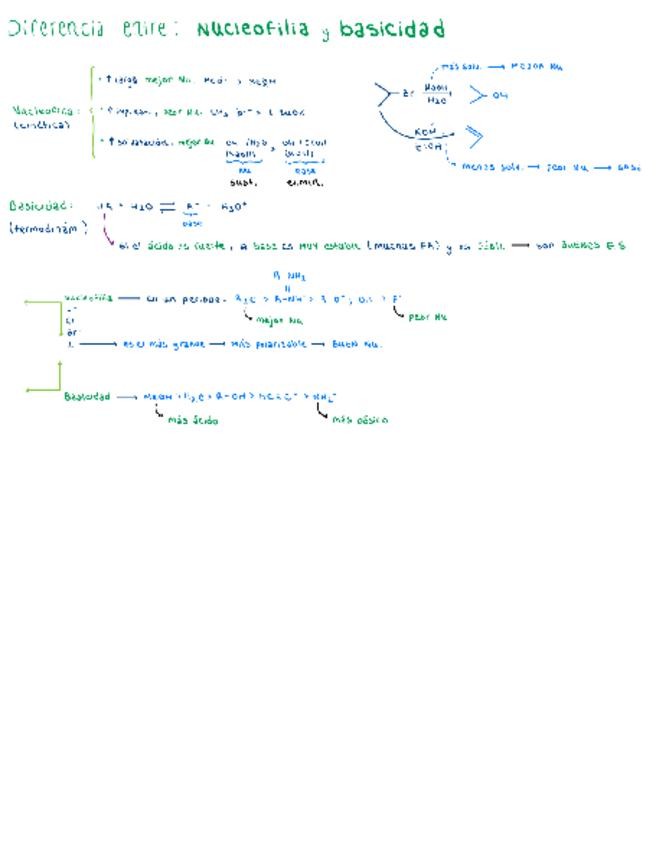 Diferencia entre: Nucleofilia y basicidad
más solv. → mejor Nu
↑ carga mejor Nu. MeO⁻ > MeOH
Br NaOH H₂O OH
Nucleofilia: (cinética)
↑ impedim., peor Nu.
↑ solvatación, mejor Nu OH⁻/H₂O (NaOH) OH⁻/EtOH (KOH)
KOH EtOH
Nu base
menos solv. → peor Nu → base
subst. elimin.
Basicidad: HA + H₂O ⇌ A⁻ + H₃O⁺
base
(termodinám)
si el ácido es fuerte, la base es muy estable y es débil → son buenos
R-NH₂
Nucleofilia → en un período: R₃C⁻ > R-NH⁻ > R-O⁻, OH⁻ > F⁻
mejor Nu peor Nu
F⁻
Cl⁻
Br⁻
I⁻ → es el más grande → más polarizable → buen Nu.
Basicidad → MeOH > H₂O > R-OH > HC≡C⁻ > NH₂⁻
más ácido más básico